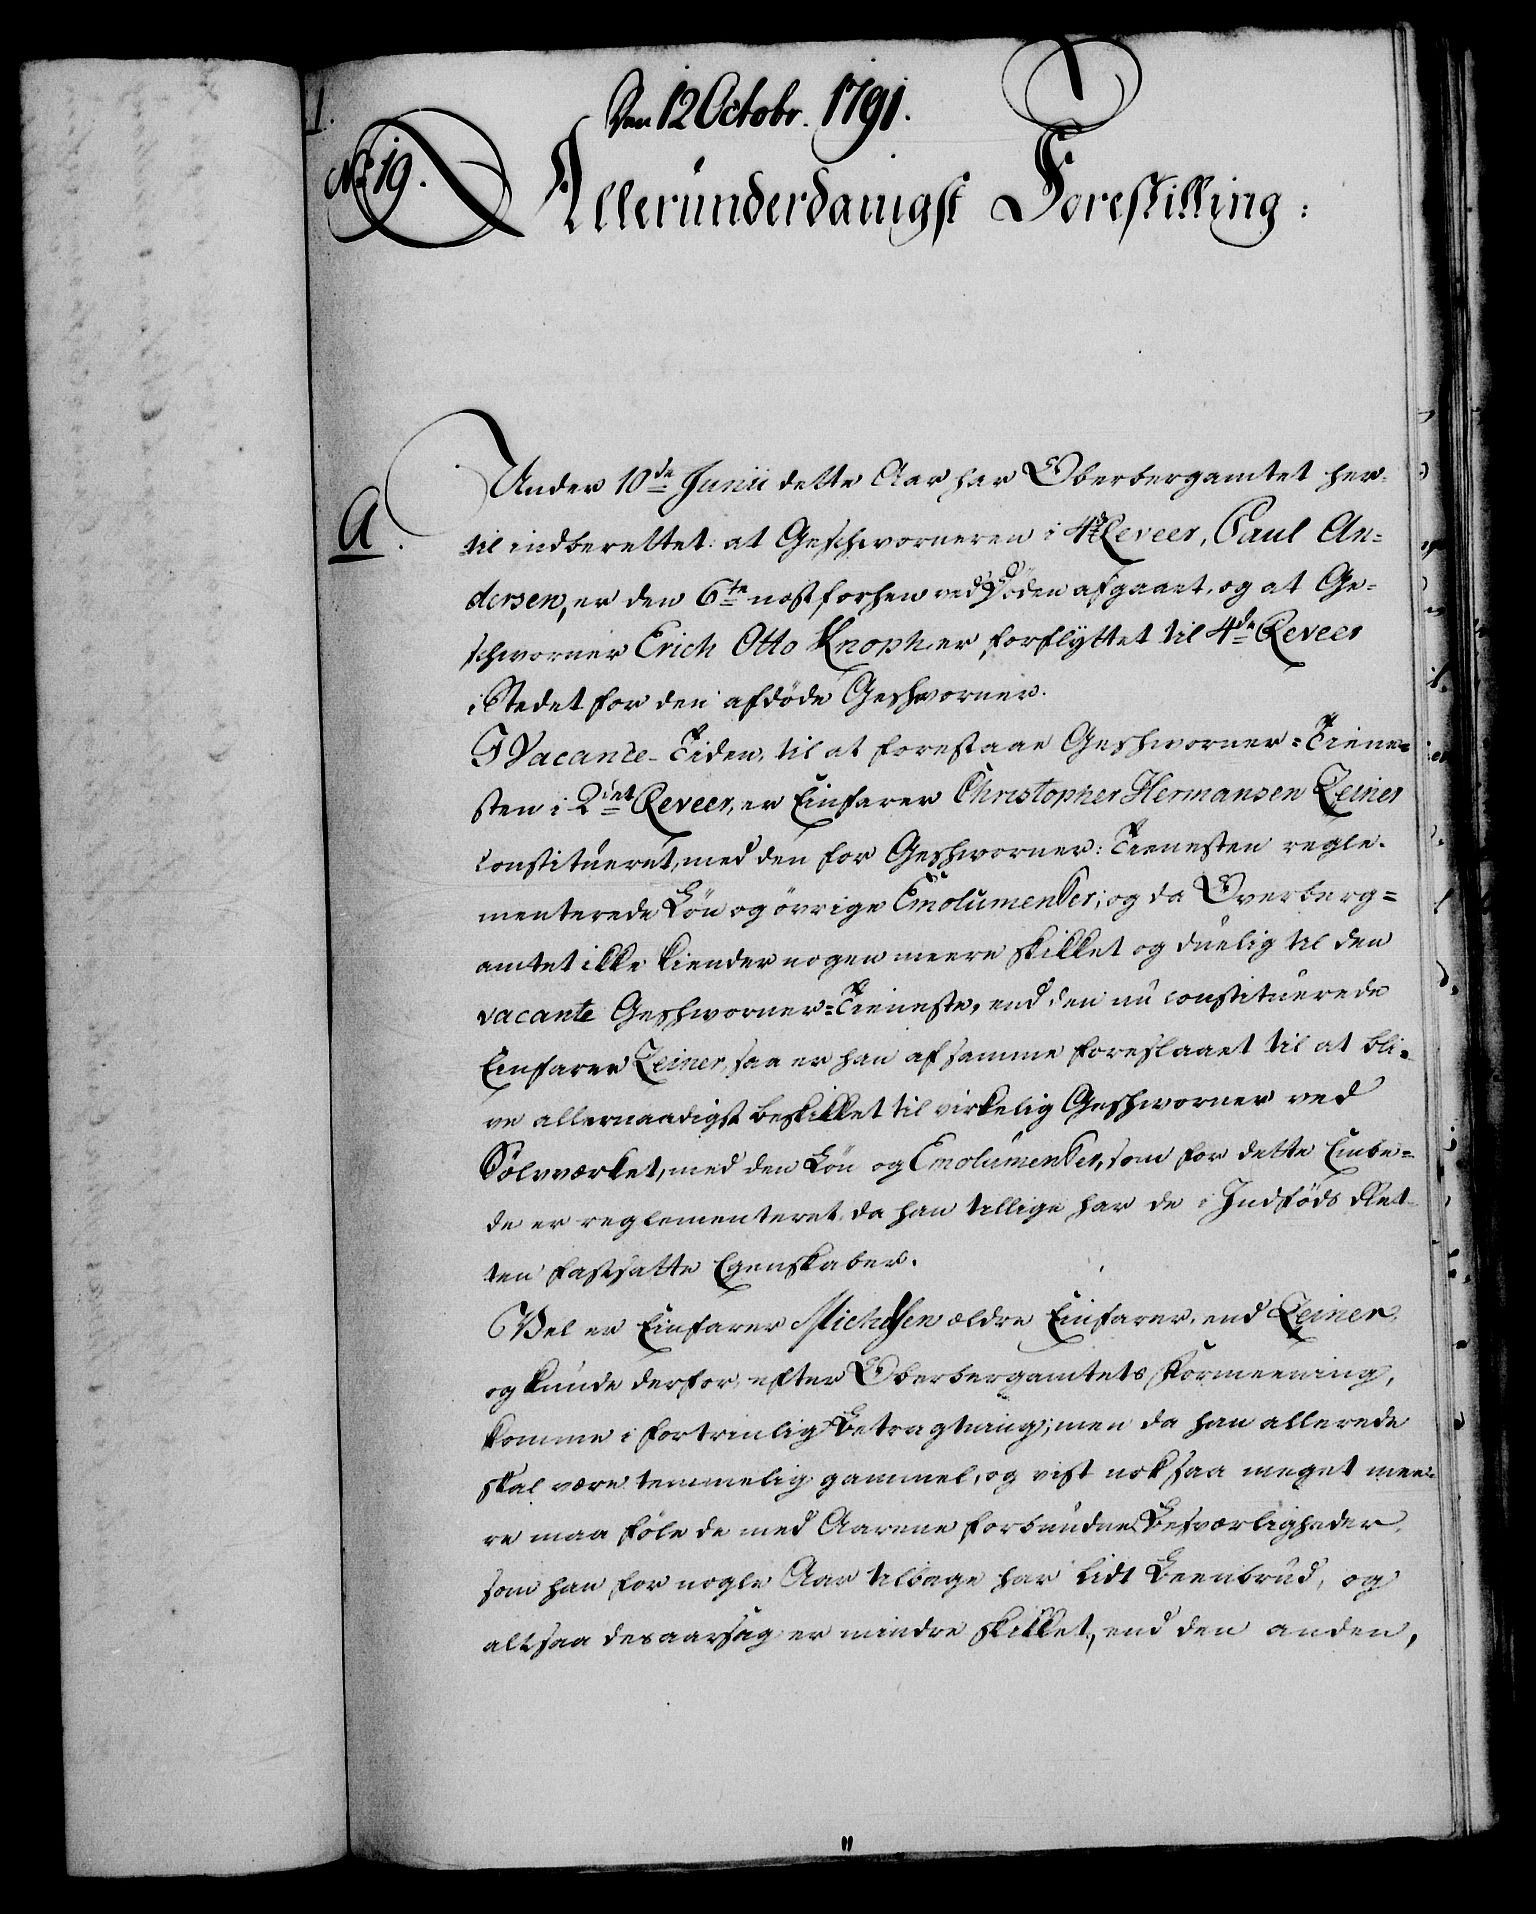 1.
Den 12 Octobr. 1791.
No 19.
Allerúnderdanigst Forestilling:
A.
Under 10de Junii dette Aar har Oberbergamtet her-
til indberettet: at Geschworneren i 4de Reveer, Paul An=
dersen, er den 6te næstforhen ved Døden afgaaet, og at Ge=
schworner Erich Otto Knoph er forflyttet til 4de Reveer
i Stedet for den afdøde Geshworner.
I Vacance-Tiden, til at forestaae Geshworner=Tiene=
sten i 2det Reveer, er Einfarer Christopher Hermansen Zeiner
constitueret, med den for Geshworner: Tienesten regle-
menterede Løn og øvrige Emolumenter; og da Overberg=
amtet ikke kiender nogen meere skikket og duelig til den
vacante Geshworner=Tieneste, end den nu constituerede
Einfarer Zeiner, saa er han af samme foreslaaet til at bli=
ve allernaadigst beskikket til virkelig Geshworner ved
Sølvværket, med den Løn og Emolumenter, som for dette Embe=
de er reglementeret, da han tillige har de i Indføds Ret-
ten fastsatte Egenskaber.
Vel er Einfarer Michelsen ældre Einfarer, end Zeiner,
og kunde derfor, efter Oberbergamtets Formeening,
komme i fortrinlig Betragtning; men da han allerede
skal være temmelig gammel, og vist nok saa meget mee-
re maa føle de med Aarene forbundne Besværligheder,
som han for nogle Aar tilbage har lidt Beenbrud, og
altsaa desaarsag er mindre skikket, end den anden,